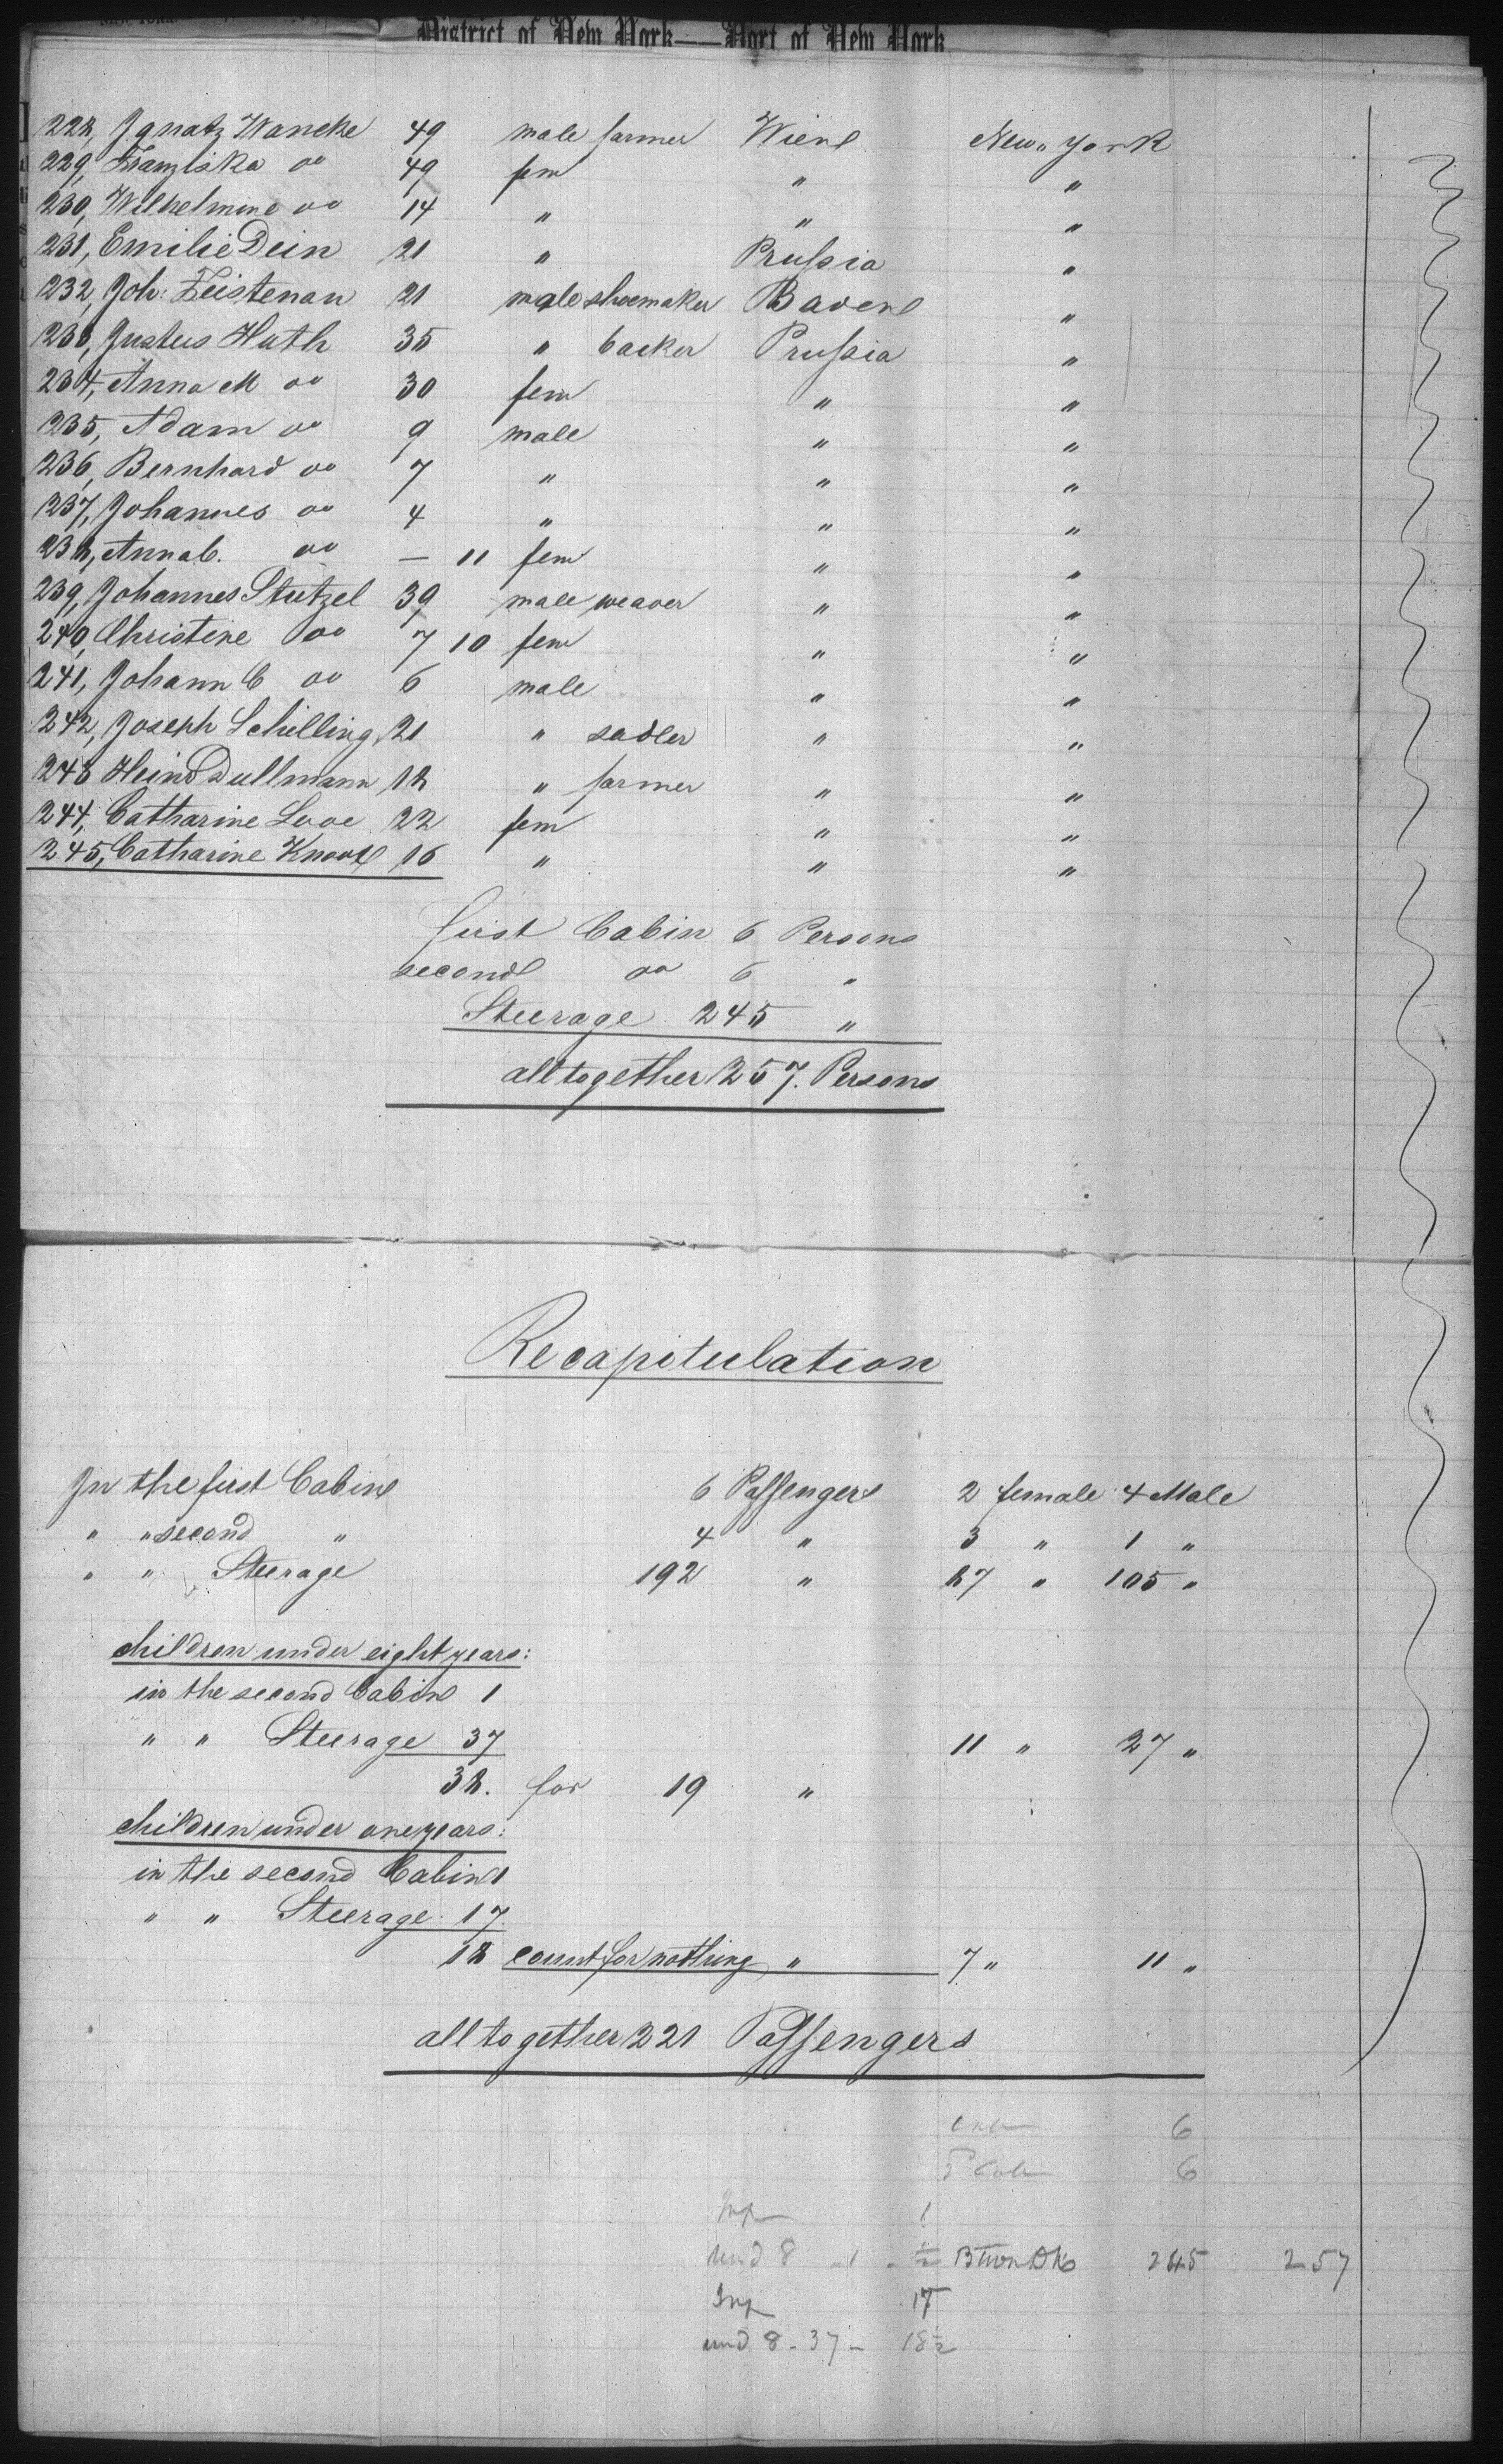 District of New York——Port of New York
228, Ignatz Wancke 49 male farmer Wien New-York
229, Franziska do 49 fem " "
230, Wilhelmine do 14 " " "
231, Emilie Dein 21 " Prussia "
232, Joh: Zeistenau 21 male shoemaker Baden "
233, Justus Huth 35 " backer Prussia "
234, Anna M do 30 fem " "
235, Adam do 9 male " "
236, Bernhard do 7 " " "
237, Johannes do 4 " " "
238, Anna C. do — 11 fem " "
239, Johannes Stutzel 39 male weaver " "
240, Christine do 7 10 fem " "
241, Johann C do 6 male " "
242, Joseph Schilling 21 " sadler " "
243 Heinr Dullmann 18 " farmer " "
244, Catharine Love 22 fem " "
245, Catharine 16 " " "
first Cabin 6 Persons
second do 6 "
Steerage 245 "
alltogether 257. Persons
Recapitulation
In the first Cabin 6 Passengers 2 female 4 Male
" " second " 4 " 3 " 1 "
" " Steerage 192 " 87 " 105 "
children under eight years:
in the second Cabin 1
" " Steerage 37 11 " 27 "
38. for 19 "
children under one years:
in the second Cabin 1
" " Steerage 17.
18 count for nothing " 7 " 11 "
alltogether 221 Passengers
6
6
1
und 8 - 1 - ½ 245 257
17
und 8 - 37 - 18½